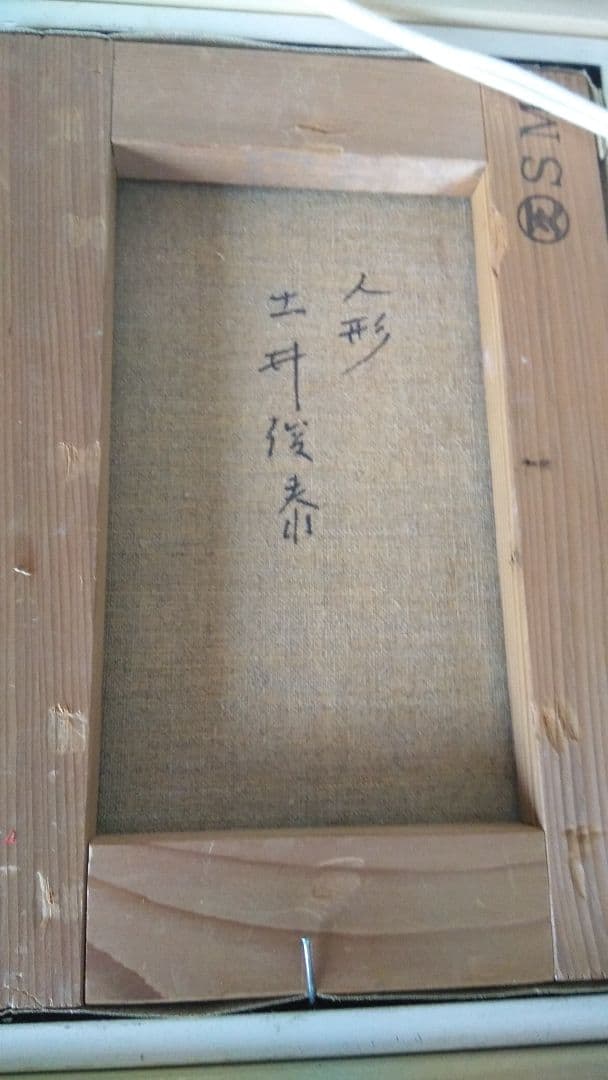 人形
土井俊泰
SM